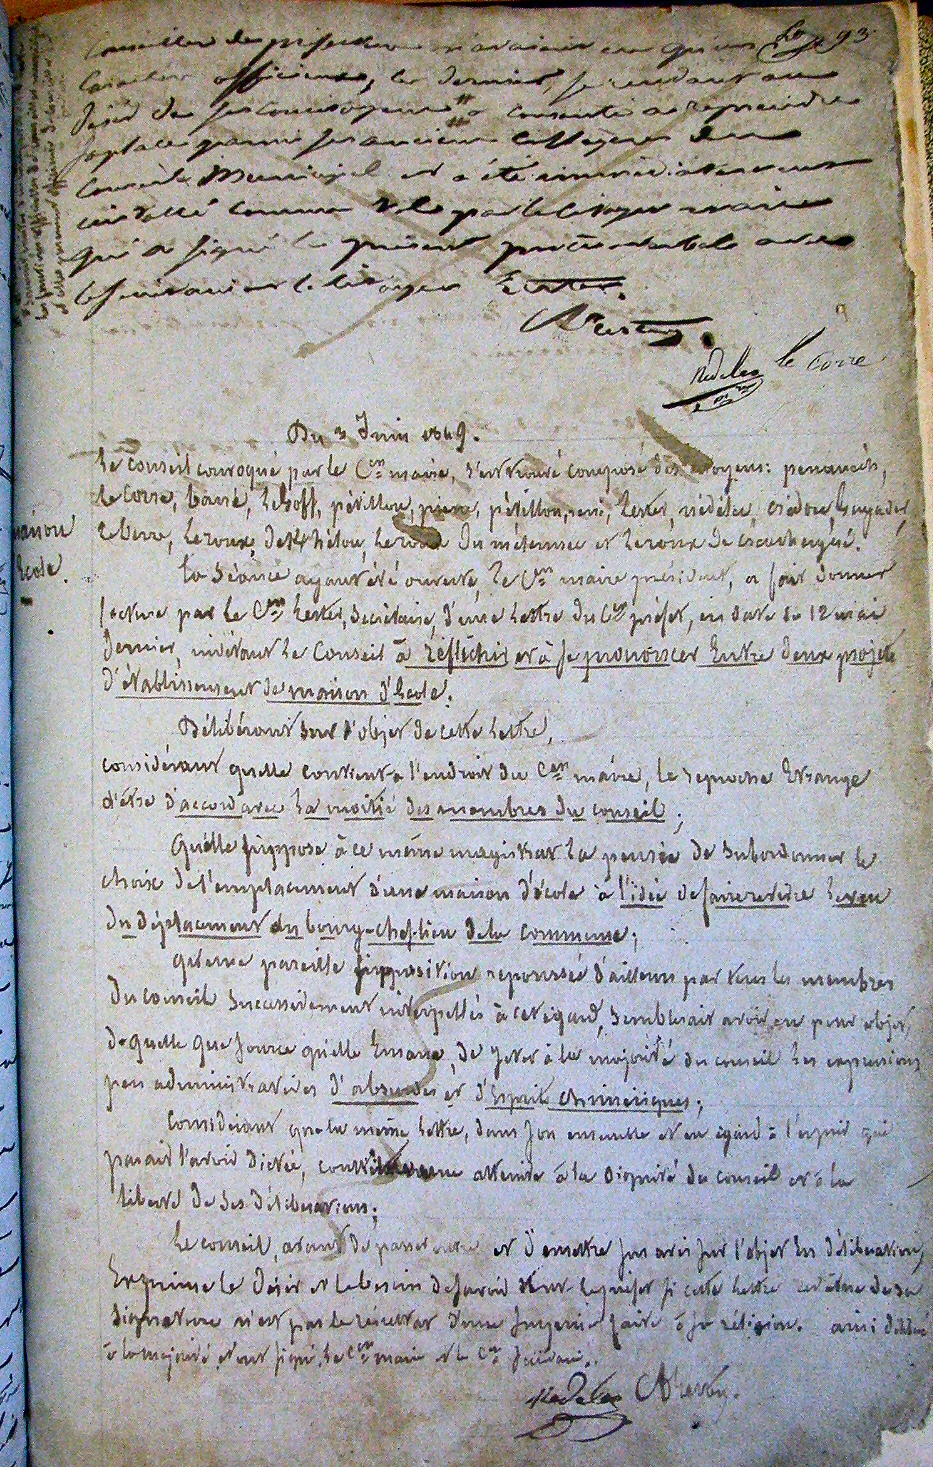 93.
conseiller de préfecture n'avaient eu qu'un
caractère officieux, ce dernier, se rendant au
désir de ses concitoyens a consenti à reprendre
sa place parmi ses anciens collègues du
Conseil Municipal et a été immédiatement
installé comme tel par le citoyen maire
qui a signé le présent procès verbal avec
le secrétaire et le citoyen
Nédelec le Corre
Du 3 Juin 1849.
Le conseil convoqué par le Cen maire, s'est trouvé composé des citoyens:
le Corre, Le Goff, pétillon, pierre, pétillon, rené, Lester, nédélec,
Le Berre, Leroux, Leroux du et Leroux de
maison
École.
La séance ayant été ouverte, le Cen maire président, a fait donner
lecture par le Cen Lester, Secrétaire, d'une lettre du Cen préfet, en date du 12 mai
dernier, invitant le Conseil à réfléchir et à se prononcer entre deux projets
d'établissement de maison d'École.
Délibérant sur l'objet de cette lettre,
considérant qu'elle contient à l'endroit du Cen maire, le reproche étrange
d'être d'accord avec la moitié des membres du conseil;
Qu'elle suppose à ce même magistrat la pensée de subordonner le
choix de l'emplacement d'une maison d'école à l'idée de faire revivre
du déplacement du bourg-chef-lieu de la commune;
Qu'une pareille supposition repoussée d'ailleurs par tous les membres
du conseil successivement interpellés à cet égard, semblerait avoir eu pour objet,
de quelle que source qu'elle émane, de jeter à la majorité du conseil les expressions
peu administratives d'absurdes et d'Esprits chimériques;
Considérant que la même lettre, dans son ensemble et eu égard à l'esprit qui
parait l'avoir dictée, une atteinte à la dignité du conseil et à la
liberté de ses délibérations;
Le conseil, avant de passer outre et d'émettre son avis sur l'objet en délibération,
Exprime le désir et le besoin de savoir du préfet si cette lettre revêtue de sa
signature n'est pas le résultat d'une surprise faite à sa réligion. ainsi délibéré
à la majorité, et ont signé, le Cen maire et le Cen Secrétaire.
Nédelec